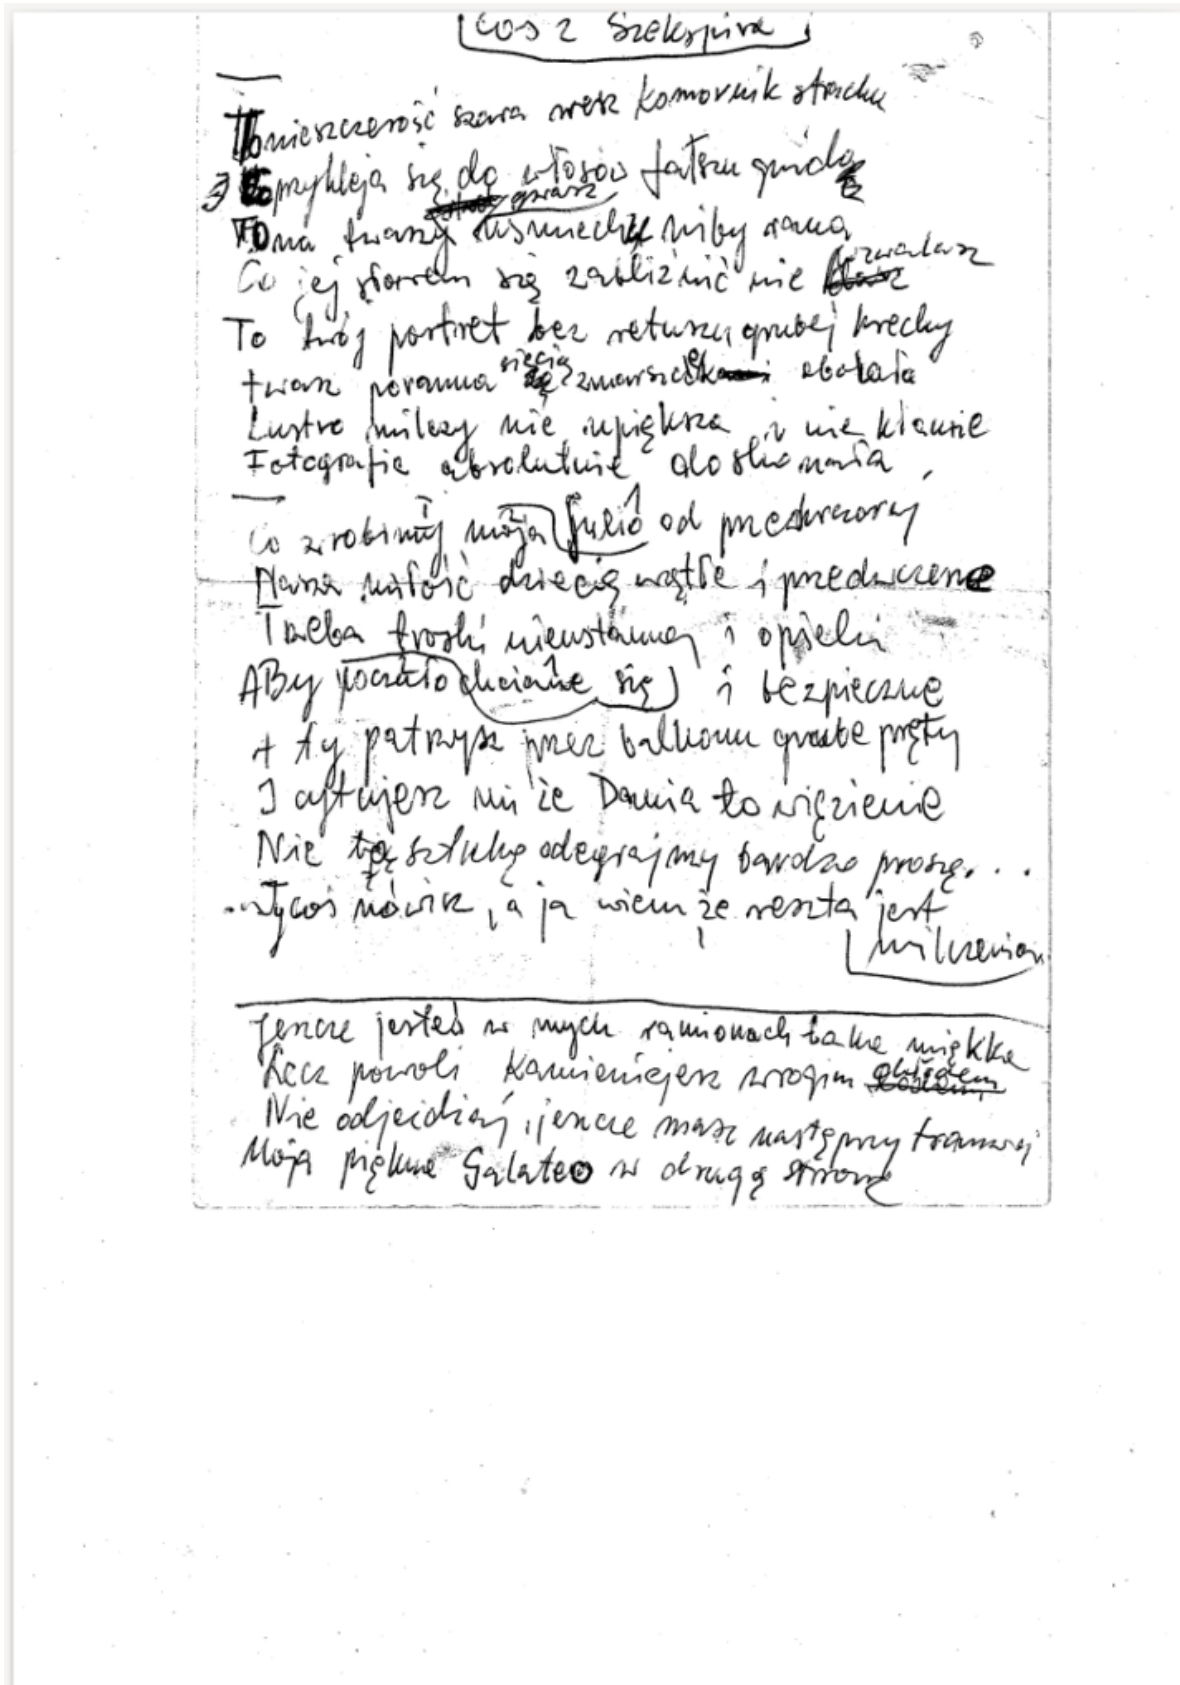 Coś z Szekspira
To nieszczerość szara wesz komornik strachu
Co przykleja się do włosów fałszu gnidą
To na twarzy grymasz uśmiechu niby rana
Co jej słowem się zabliźnić nie pozwalasz
To twój portret bez retuszu grubej krechy
twarz poranna siecią zmarszczek obolała
Lustro milczy nie upiększa i nie kłamie
Fotografia absolutnie doskonała
Co zrobimy moja Julio od przedwczoraj
Nasza miłość dziecię wątłe i przedwczesne
Trzeba troski nieustannej i opieki
ABy poczęło chciane się i bezpieczne
A ty patrzysz przez balkonu grube pręty
I cytujesz mi że Dania to więzienie
Nie tę sztukę odegrajmy bardzo proszę...
..Ty coś mówisz, a ja wiem, że reszta jest
milczeniem
Jeszcze jesteś w mych ramionach taka miękka
Lecz powoli Kamieniejesz wrogim chłodem
Nie odjeżdżaj, jeszcze masz następny tramwaj
Moja piękna Galateo w drugą stronę